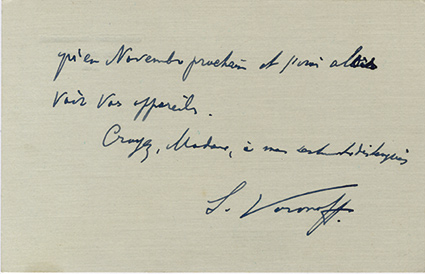 qu'en Novembre prochain et j'irai alors
voir vos appareils.
Croyez, Madame, à mes sentts distingués
S. Voronoff.